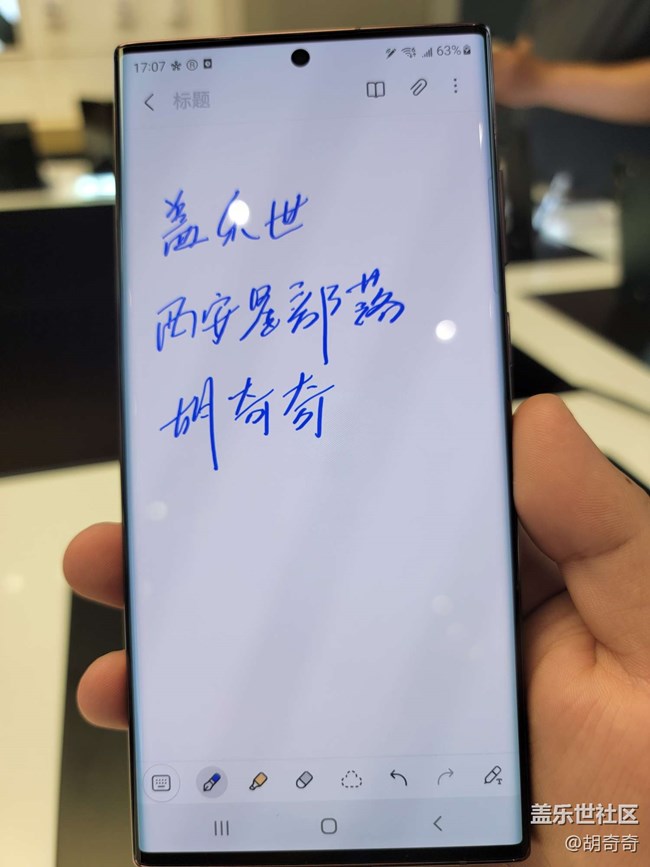 17:07 63%
标题
盖乐世
西安星部落
胡奇奇
盖乐世社区
@胡奇奇